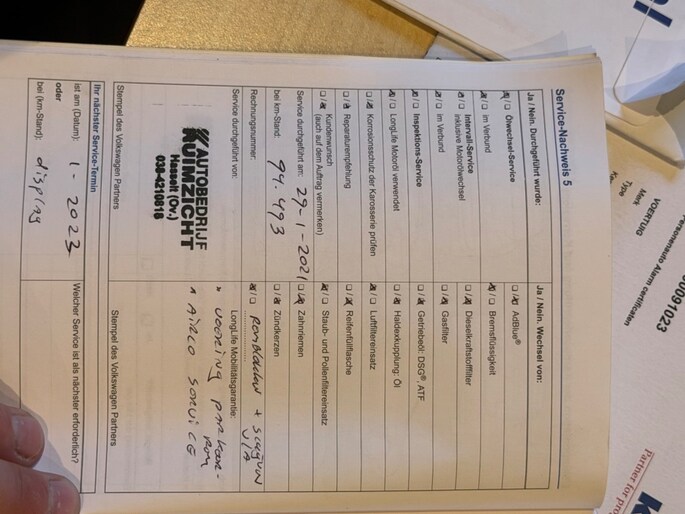 Service-Nachweis 5
Ja / Nein. Durchgeführt wurde:
Ölwechsel-Service
im Verbund
Intervall-Service
inklusive Motorölwechsel
im Verbund
Inspektions-Service
LongLife Motoröl verwendet
Korrosionsschutz der Karosserie prüfen
Reparaturempfehlung
Kundenwunsch
(auch auf dem Auftrag vermerken)
Service durchgeführt am: 29-1-2021
bei km-Stand: 94.493
Rechnungsnummer:
Service durchgeführt von:
AUTOBEDRIJF
RUIMZICHT
Hasselt (Ov.)
038-4210816
Stempel des Volkswagen Partners
Ja / Nein. Wechsel von:
AdBlue®
Bremsflüssigkeit
Dieselkraftstofffilter
Gasfilter
Getriebeöl: DSG®, ATF
Haldexkupplung: Öl
Luftfiltereinsatz
Reifenfüllflasche
Staub- und Pollenfiltereinsatz
Zahnriemen
Zündkerzen
LongLife Mobilitätsgarantie:
Airco Service
Stempel des Volkswagen Partners
Ihr nächster Service-Termin
ist am (Datum): 1-2023
oder
bei (km-Stand): display
Welcher Service ist als nächster erforderlich?
Personenauto Alarm certificaten
VOERTUIG
Merk
Type
0091023
Partner for